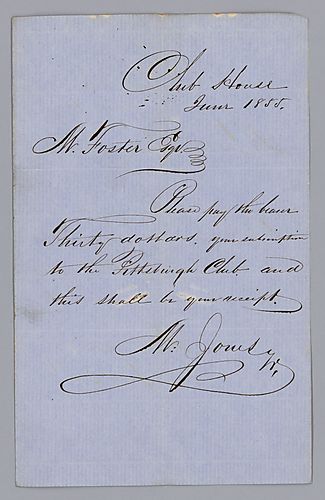 Club House
June 1855.
M. Foster Esqr
Please pay the bearer
Thirty dollars, your subscription
to the Pittsburgh Club and
this shall be your receipt.
M. Jones